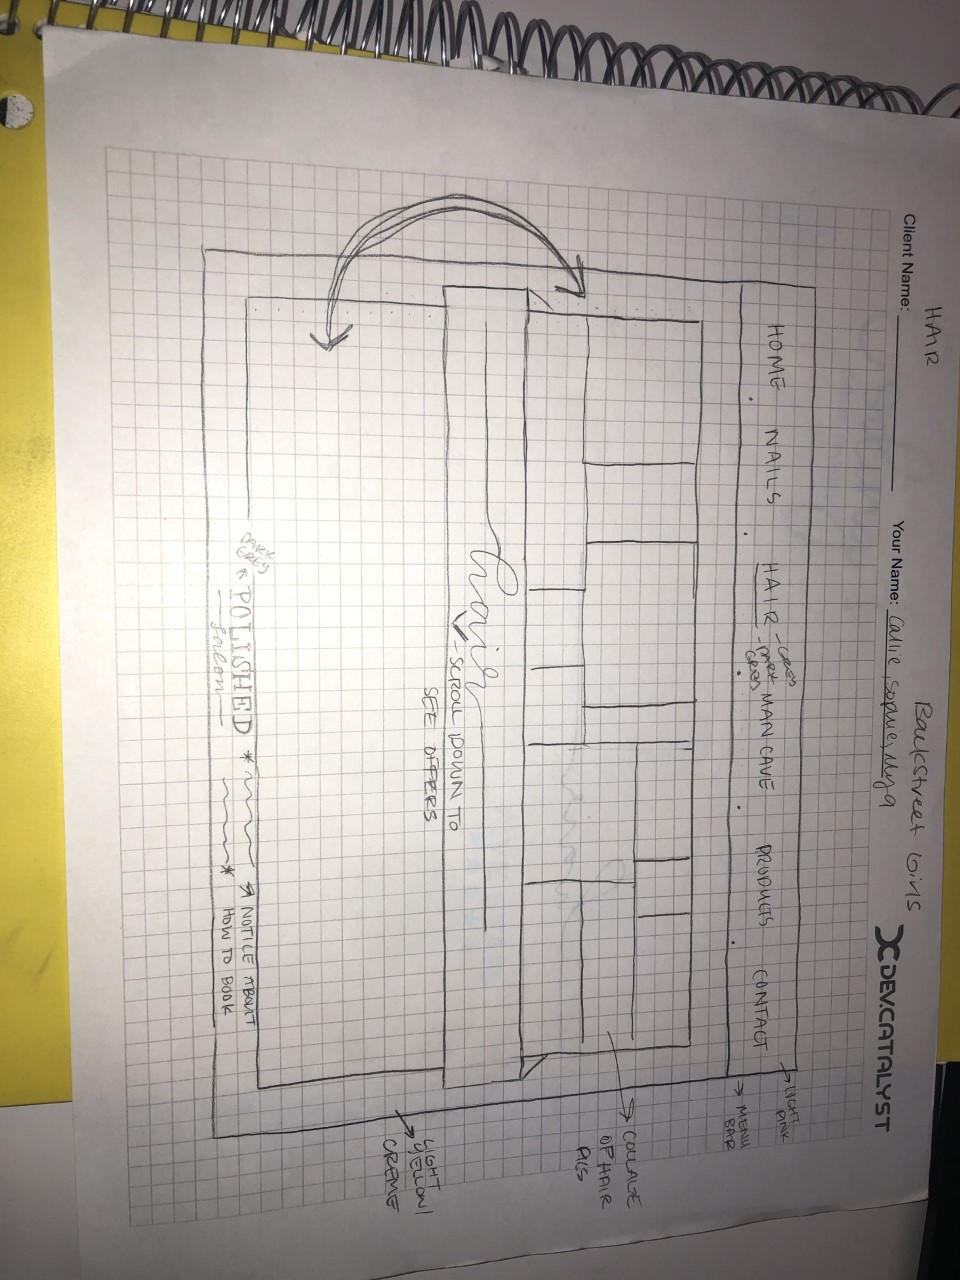 HAIR
Backstreet Girls
Client Name:
Your Name: Callie, Sophie, Mya
DEV.CATALYST
HOME NAILS HAIR MAN CAVE PRODUCTS CONTACT
- GREY
- DARK
GREY
LIGHT
PINK
MENU
BAR
COLLAGE
OF HAIR
PICS
hair
- SCROLL DOWN TO
SEE OFFERS
LIGHT
YELLOW/
CREME
DARK
GREY
POLISHED
salon
NOTICE ABOUT
HOW TO BOOK